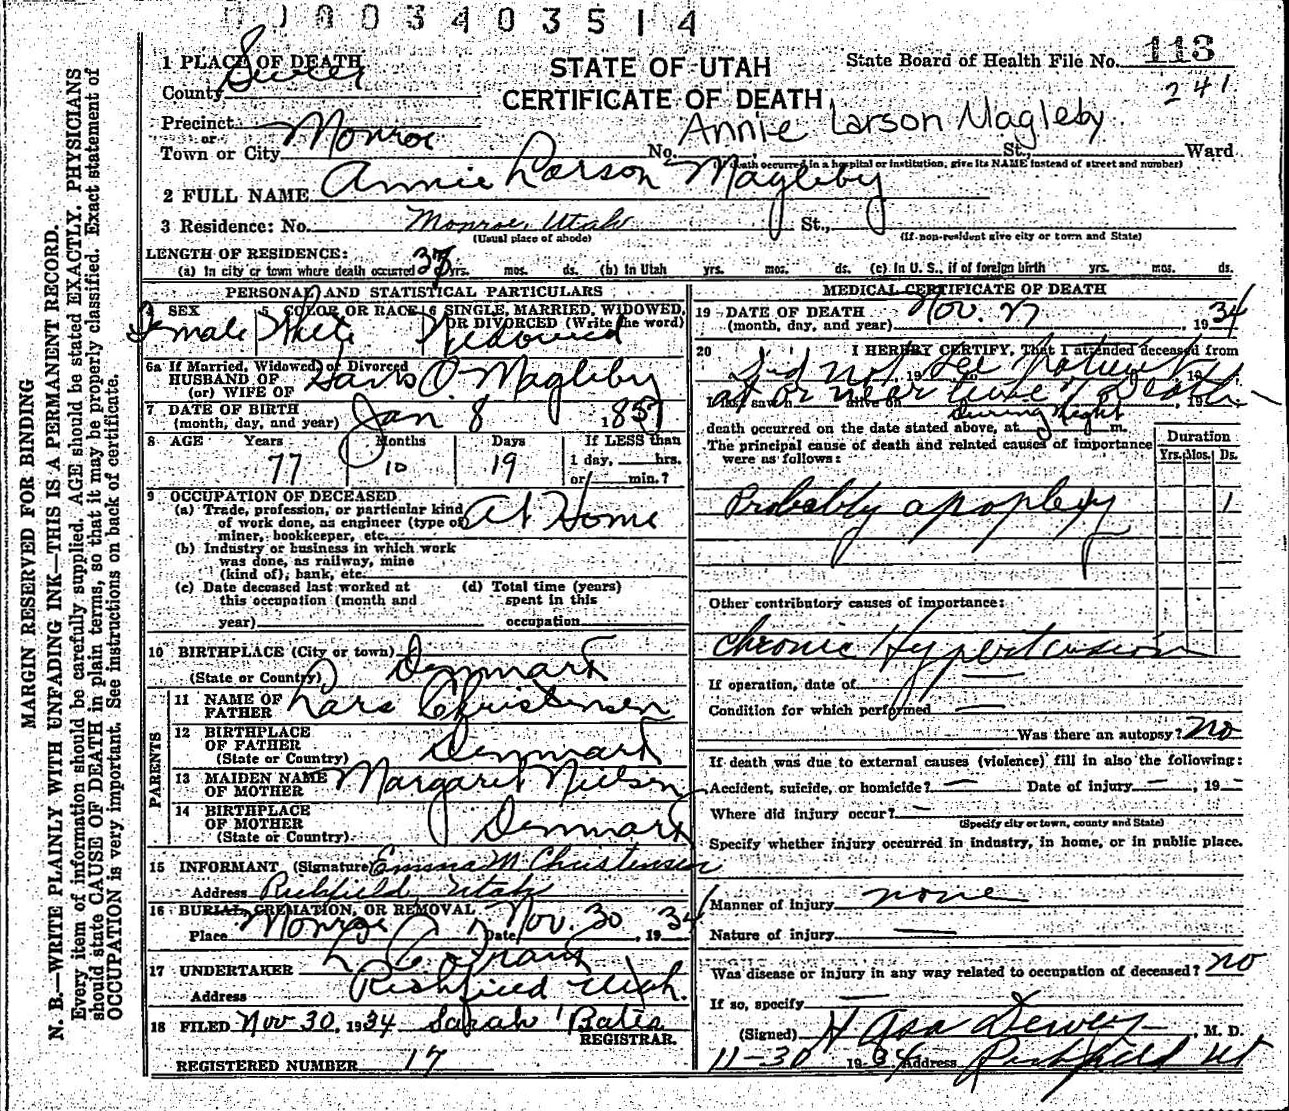 0 3 4 0 3 5 1 4
1 PLACE OF DEATH
County Sevier
STATE OF UTAH
CERTIFICATE OF DEATH
State Board of Health File No. 113
241
Precinct
or
Town or City Monroe
Annie Larson Magleby
No. St., Ward
(If death occurred in a hospital or institution, give its NAME instead of street and number)
2 FULL NAME Annie Larson Magleby
3 Residence: No. Monroe, Utah St.,
(Usual place of abode) (If non-resident give city or town and State)
LENGTH OF RESIDENCE:
(a) In city or town where death occurred yrs. mos. ds. (b) In Utah yrs. mos. ds. (c) In U. S., if of foreign birth yrs. mos. ds.
PERSONAL AND STATISTICAL PARTICULARS
4 SEX 5 COLOR OR RACE 6 SINGLE, MARRIED, WIDOWED, OR DIVORCED (Write the word)
Female White Widowed
6a If Married, Widowed, or Divorced
HUSBAND OF
(or) WIFE OF Hans O. Magleby
7 DATE OF BIRTH
(month, day, and year) Jan 8 1857
8 AGE Years Months Days If LESS than
1 day, hrs.
or min.?
77 10 19
9 OCCUPATION OF DECEASED
(a) Trade, profession, or particular kind
of work done, as engineer (type of)
miner, bookkeeper, etc. At Home
(b) Industry or business in which work
was done, as railway, mine
(kind of), bank, etc.
(c) Date deceased last worked at
this occupation (month and
year)
(d) Total time (years)
spent in this
occupation
10 BIRTHPLACE (City or town)
(State or Country) Denmark
PARENTS
11 NAME OF
FATHER Lars Christensen
12 BIRTHPLACE
OF FATHER
(State or Country) Denmark
13 MAIDEN NAME
OF MOTHER Margaret Nielsen
14 BIRTHPLACE
OF MOTHER
(State or Country) Denmark
15 INFORMANT (Signature) Emma M Christensen
Address Richfield Utah
16 BURIAL, CREMATION, OR REMOVAL
Place Monroe Date Nov. 30, 1934
17 UNDERTAKER
Address Richfield Utah.
18 FILED Nov 30, 1934 Sarah Bates
REGISTRAR.
REGISTERED NUMBER 17
MEDICAL CERTIFICATE OF DEATH
19 DATE OF DEATH
(month, day, and year) Nov. 27, 1934
20 I HEREBY CERTIFY, That I attended deceased from
Did not see patient
at or near time of death
During Night
death occurred on the date stated above, at m.
The principal cause of death and related causes of importance
were as follows:
Duration
Yrs. Mos. Ds.
Probably apoplexy 1
Other contributory causes of importance:
Chronic Hypertension
If operation, date of —
Condition for which performed —
Was there an autopsy? No
If death was due to external causes (violence) fill in also the following:
Accident, suicide, or homicide? — Date of injury —, 19 —
Where did injury occur? —
(Specify city or town, county and State)
Specify whether injury occurred in industry, in home, or in public place.
Manner of injury none
Nature of injury —
Was disease or injury in any way related to occupation of deceased? No
If so, specify —
(Signed) H Asa Dewey, M. D.
11-30 1934 Address Richfield Ut
MARGIN RESERVED FOR BINDING
N. B.—WRITE PLAINLY WITH UNFADING INK—THIS IS A PERMANENT RECORD.
Every item of information should be carefully supplied. AGE should be stated EXACTLY. PHYSICIANS
should state CAUSE OF DEATH in plain terms, so that it may be properly classified. Exact statement of
OCCUPATION is very important. See instructions on back of certificate.